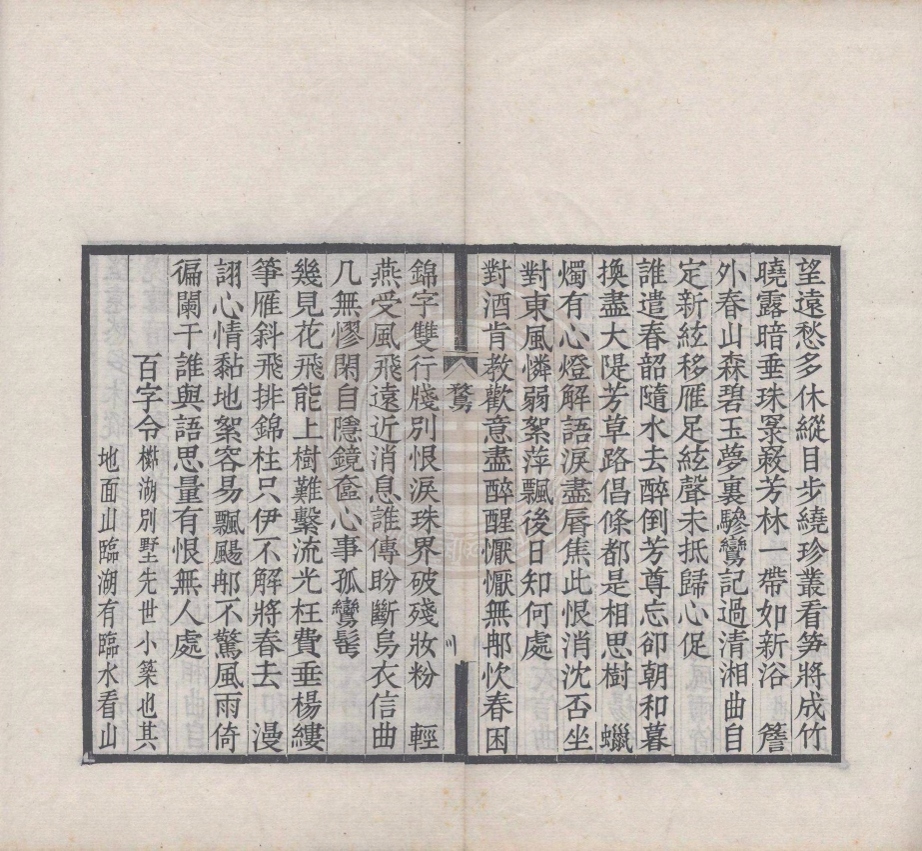 望遠愁多休縱目步繞珍叢看笋將成竹
曉露暗垂珠㬅㲉芳林一帶如新浴　簷
外春山森碧玉夢裏驂鸞記過清湘曲自
定新絃移雁足絃聲未抵歸心促
誰遣春韶隨水去醉倒芳尊忘卻朝和暮
換盡大隄芳草路倡條都是相思樹　蠟
燭有心燈解語淚盡脣焦此恨消沈否坐
對東風憐弱絮萍飄後日知何處
對酒肯教歡意盡醉醒懨懨無那忺春困
鶩
錦字雙行牋別恨淚珠界破殘妝粉　輕
燕受風飛遠近消息誰傳盼斷烏衣信曲
几無憀閑自隱鏡奩心事孤鸞髩
幾見花飛能上樹難繫流光枉費垂楊縷
筝雁斜飛排錦柱只伊不解將春去　漫
詡心情黏地絮容易飄颺那不驚風雨倚
徧闌干誰與語思量有恨無人處
百字令
湖別墅先世小築也其
地面山臨湖有臨水看山